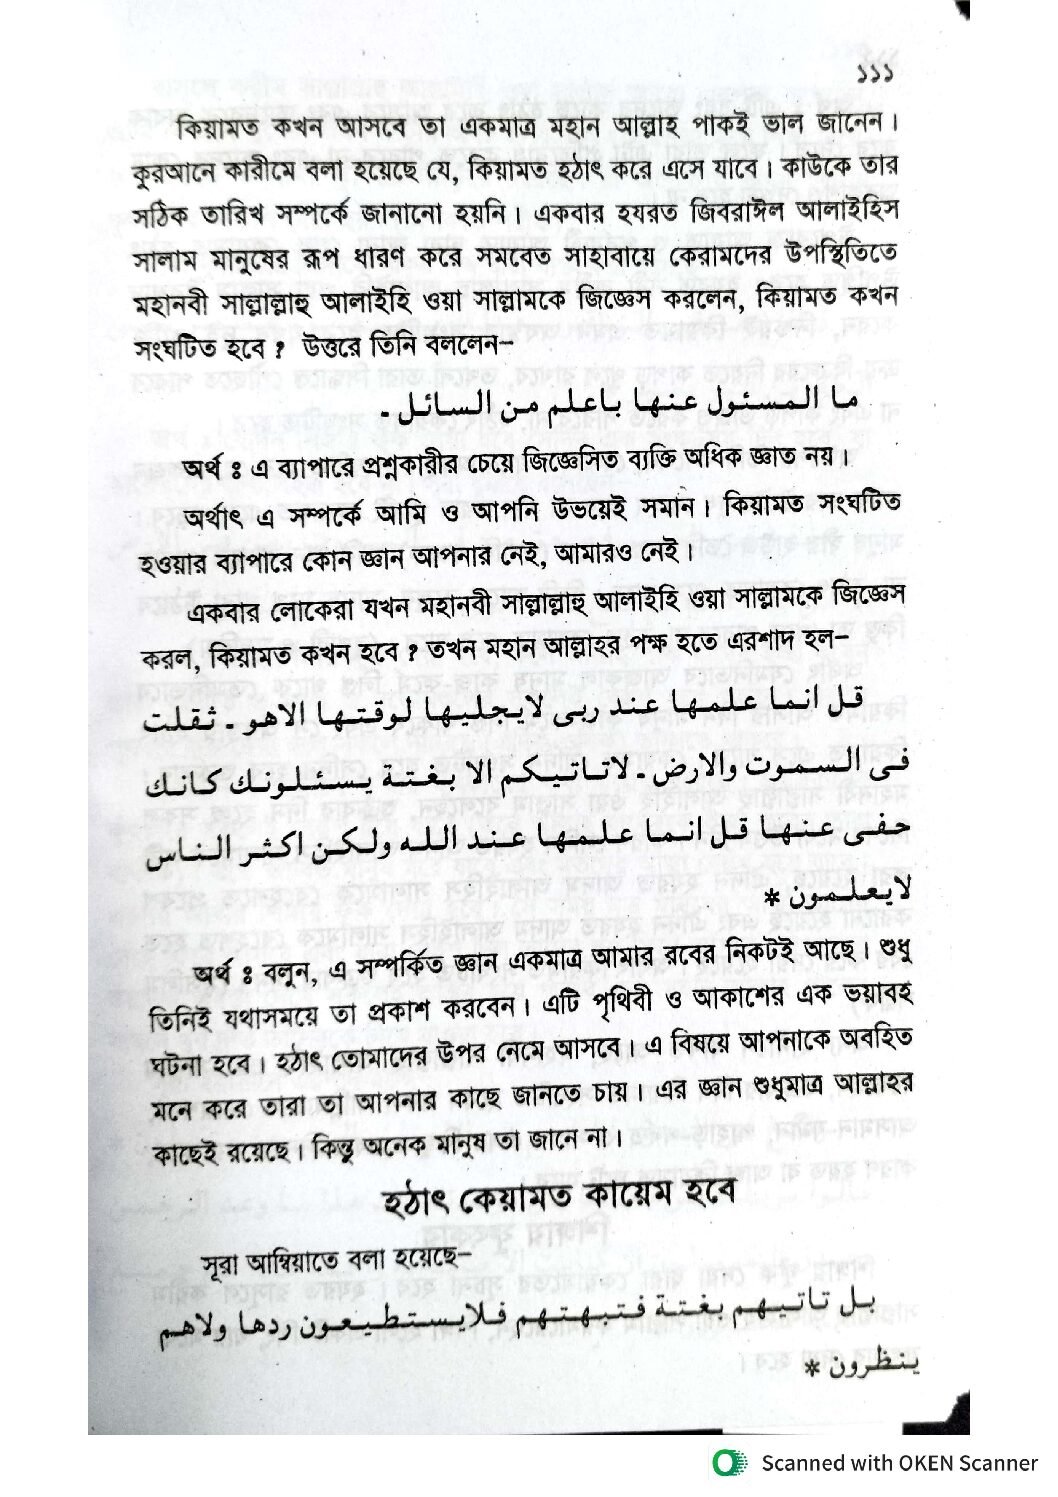 ১১১
কিয়ামত কখন আসবে তা একমাত্র মহান আল্লাহ পাকই ভাল জানেন।
কুরআনে কারীমে বলা হয়েছে যে, কিয়ামত হঠাৎ করে এসে যাবে। কাউকে তার
সঠিক তারিখ সম্পর্কে জানানো হয়নি। একবার হযরত জিবরাঈল আলাইহিস
সালাম মানুষের রূপ ধারণ করে সমবেত সাহাবায়ে কেরামদের উপস্থিতিতে
মহানবী সাল্লাল্লাহু আলাইহি ওয়া সাল্লামকে জিজ্ঞেস করলেন, কিয়ামত কখন
সংঘটিত হবে ? উত্তরে তিনি বললেন–
ما المسئول عنها باعلم من السائل ـ
অর্থ ঃ এ ব্যাপারে প্রশ্নকারীর চেয়ে জিজ্ঞেসিত ব্যক্তি অধিক জ্ঞাত নয়।
অর্থাৎ এ সম্পর্কে আমি ও আপনি উভয়েই সমান। কিয়ামত সংঘটিত
হওয়ার ব্যাপারে কোন জ্ঞান আপনার নেই, আমারও নেই।
একবার লোকেরা যখন মহানবী সাল্লাল্লাহু আলাইহি ওয়া সাল্লামকে জিজ্ঞেস
করল, কিয়ামত কখন হবে ? তখন মহান আল্লাহর পক্ষ হতে এরশাদ হল–
قل انما علمها عند ربى لايجليها لوقتها الاهو ـ ثقلت
فى السموت والارض ـ لاتاتيكم الا بغتة يسئلونك كانك
حفى عنها قل انما علمها عند الله ولكن اكثر الناس
لايعلمون *
অর্থ ঃ বলুন, এ সম্পর্কিত জ্ঞান একমাত্র আমার রবের নিকটই আছে। শুধু
তিনিই যথাসময়ে তা প্রকাশ করবেন। এটি পৃথিবী ও আকাশের এক ভয়াবহ
ঘটনা হবে। হঠাৎ তোমাদের উপর নেমে আসবে। এ বিষয়ে আপনাকে অবহিত
মনে করে তারা তা আপনার কাছে জানতে চায়। এর জ্ঞান শুধুমাত্র আল্লাহর
কাছেই রয়েছে। কিন্তু অনেক মানুষ তা জানে না।
হঠাৎ কেয়ামত কায়েম হবে
সূরা আম্বিয়াতে বলা হয়েছে–
بل تاتيهم بغتة فتبهتهم فلايستطيعون ردها ولاهم
ينظرون *
Scanned with OKEN Scanner